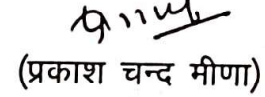 (प्रकाश चन्द मीणा)